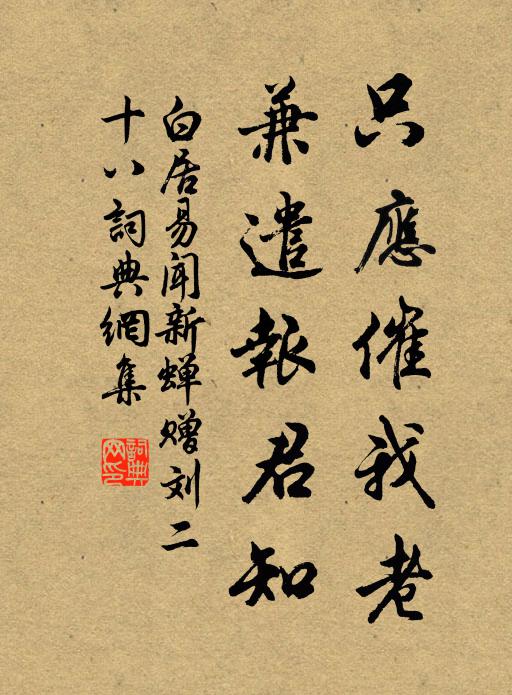 只應催我老
兼遣報君知
白居易闻新蝉赠刘二
十八詞典網集
詞典
网印